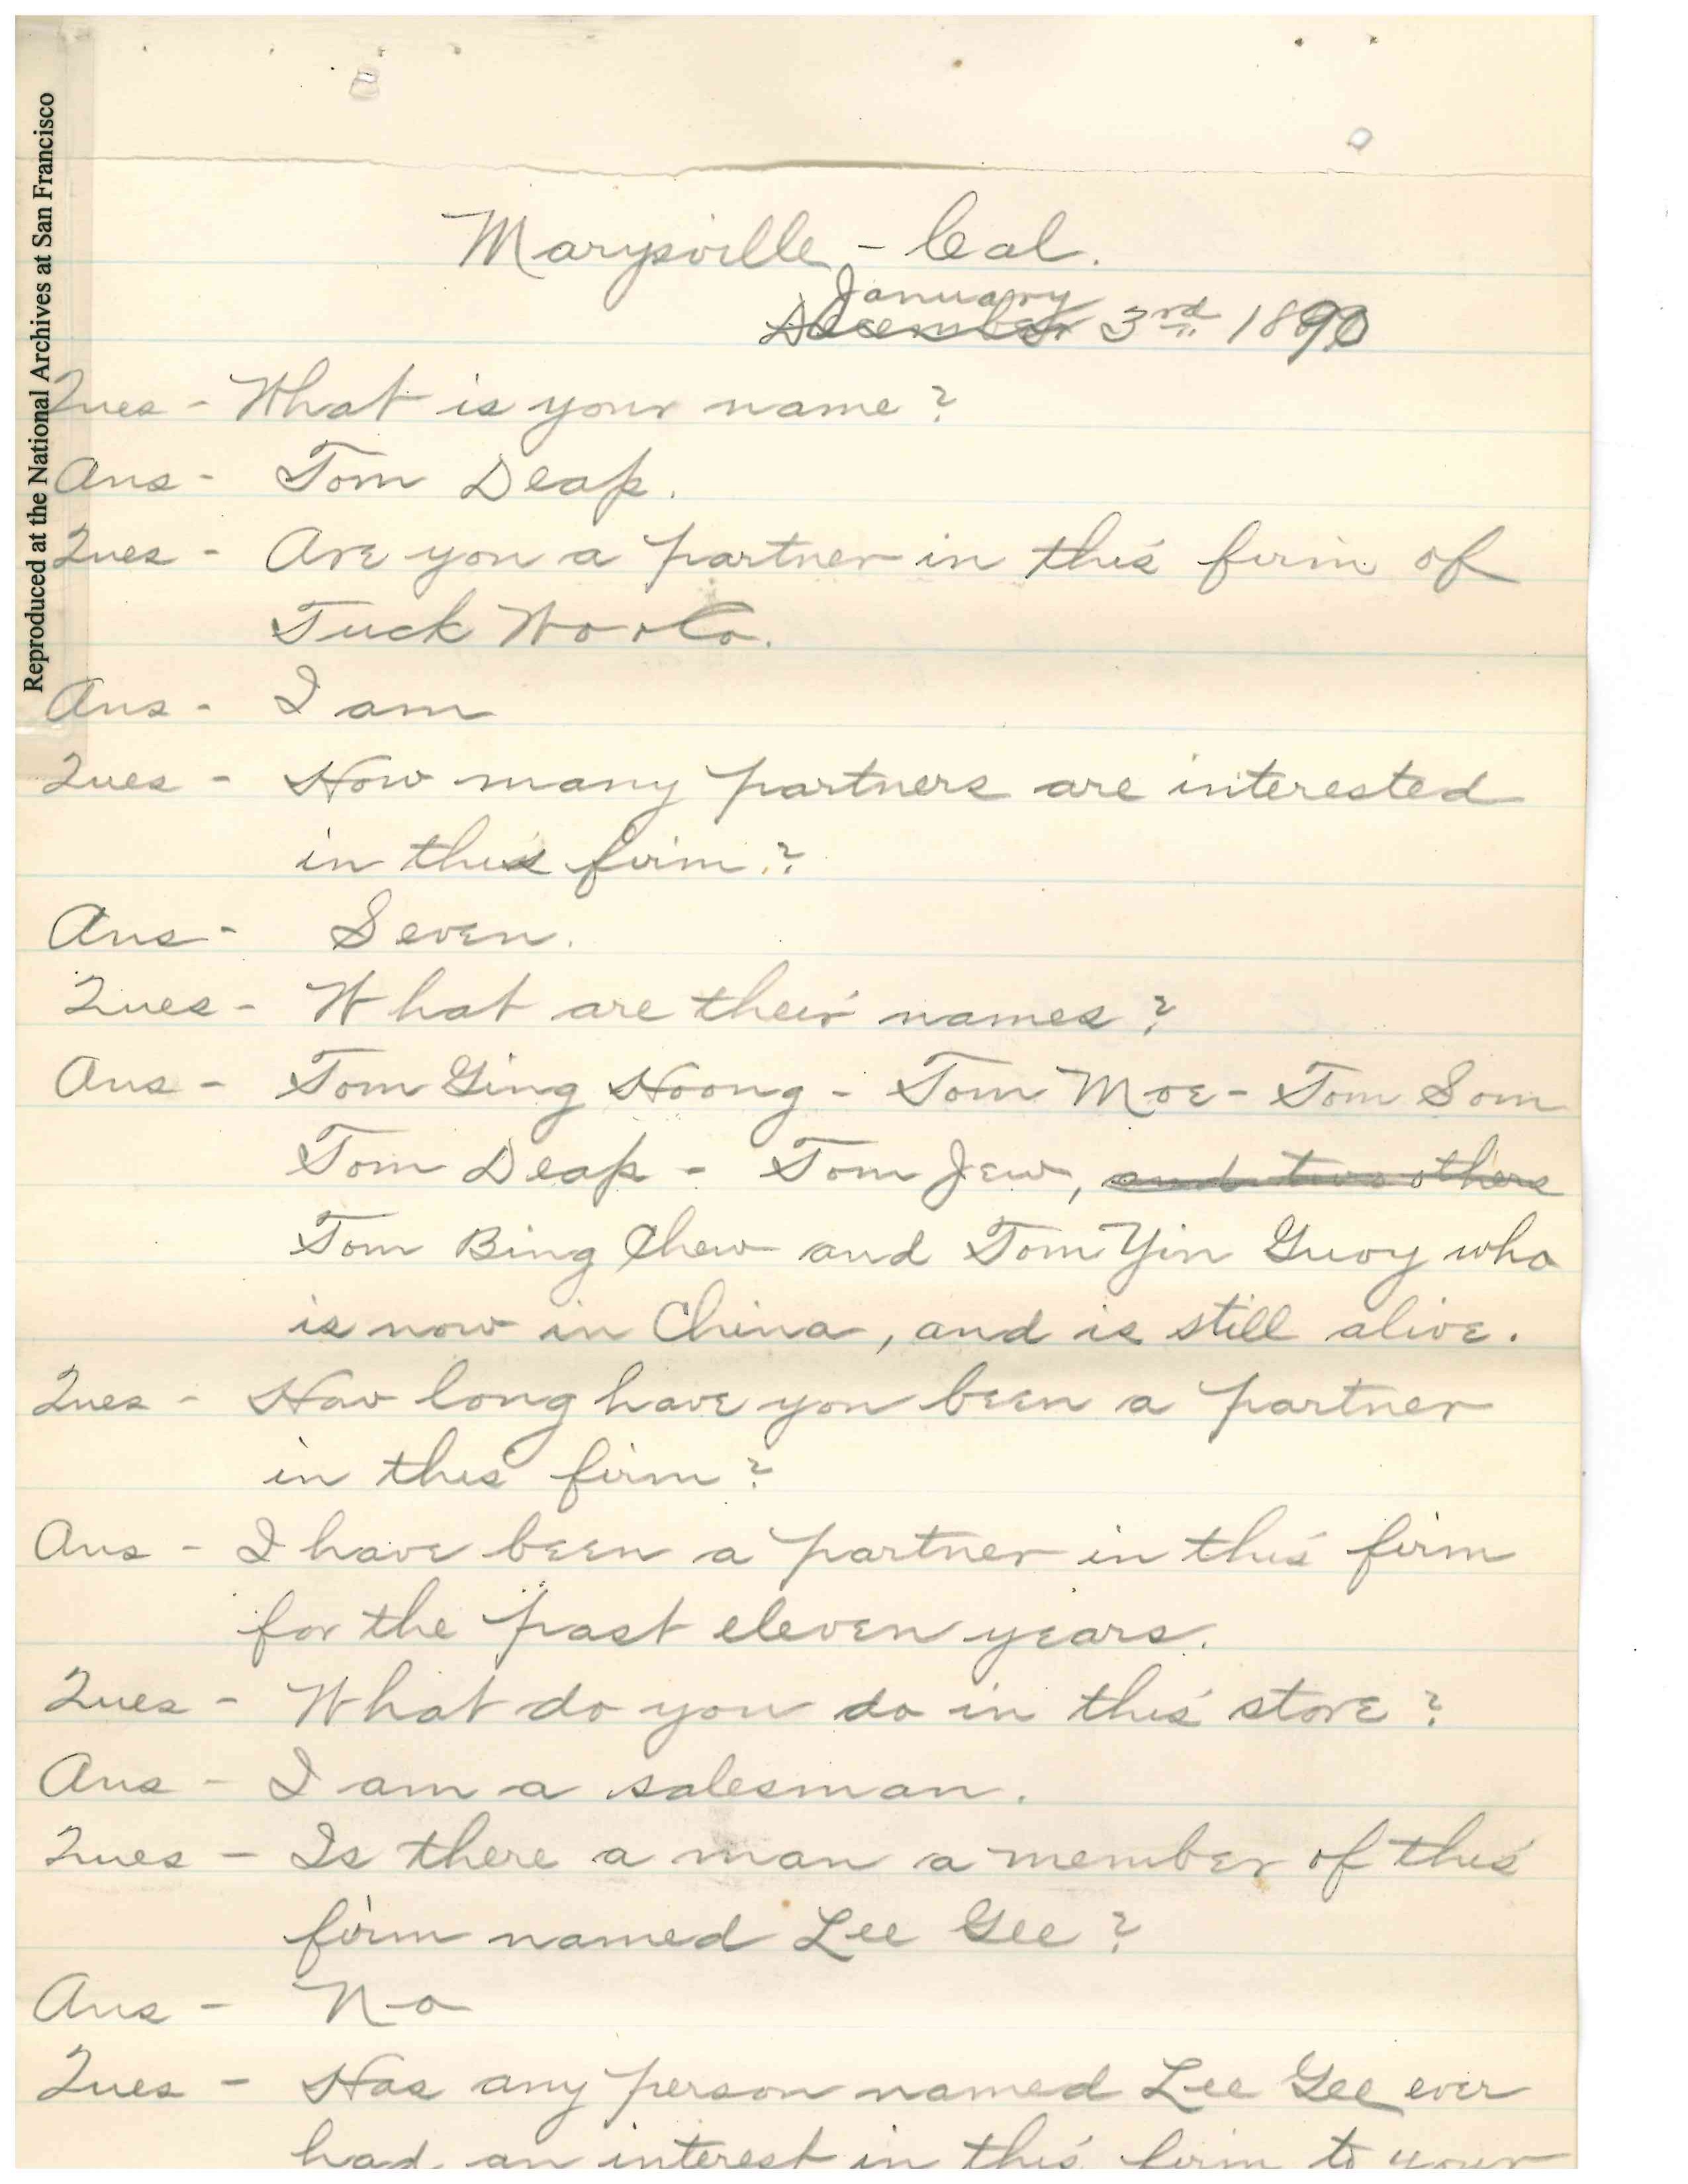 Reproduced at the National Archives at San Francisco
Marysville - Cal.
January
December 3rd 1890
Ques - What is your name?
Ans - Tom Deap.
Ques - Are you a partner in this firm of
Tuck Wo & Co.
Ans - I am
Ques - How many partners are interested
in this firm?
Ans - Seven.
Ques - What are their names?
Ans - Tom Ging Hoong - Tom Moe - Tom Som
Tom Deap - Tom Jew, and two others
Tom Bing Chew and Tom Yin Guoy who
is now in China, and is still alive.
Ques - How long have you been a partner
in this firm?
Ans - I have been a partner in this firm
for the past eleven years.
Ques - What do you do in this store?
Ans - I am a salesman.
Ques - Is there a man a member of this
firm named Lee Gee?
Ans - No
Ques - Has any person named Lee Gee ever
had an interest in this firm to your